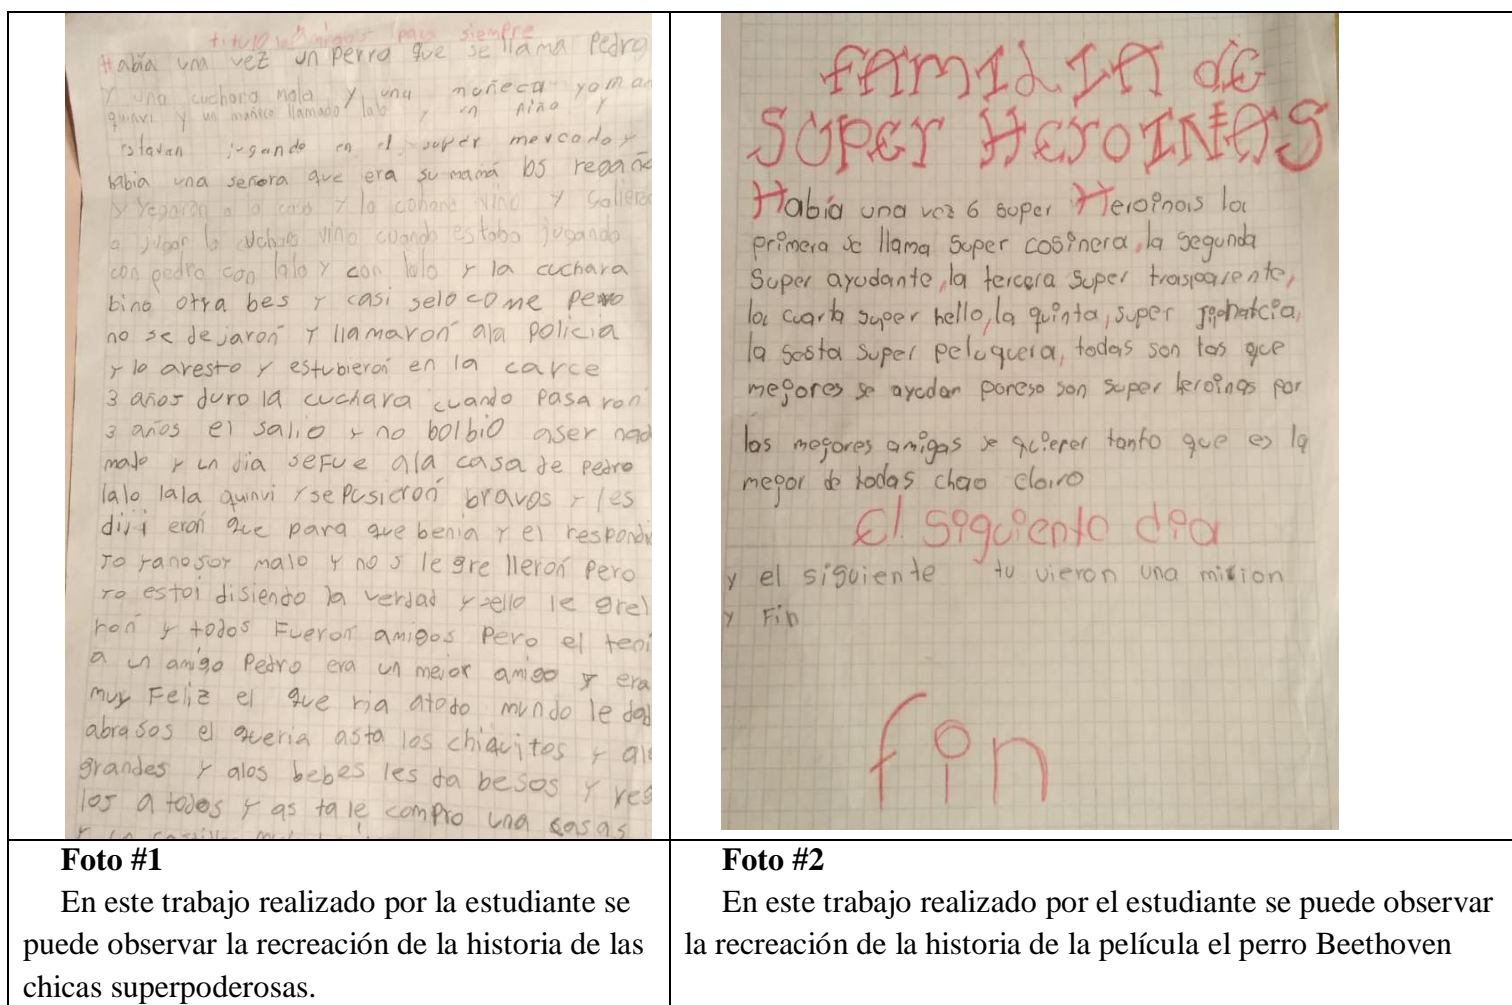 titulo Amigos para siempre
Habia una vez un perro que se llama Pedro
Y una cuchara mala y una muñeca
quinvi y un muñeco llamado lalo, un niño y
estavan jugando en el super mercado y
habia una señora que era su mamá los regaño
y yegaron a la casa y la vino y
a jugar la cuchara vino cuando estaba jugando
con pedro con lalo y con lalo y la cuchara
bino otra bes y casi selo come pero
no se dejaron y llamaron ala policia
y lo aresto y estubieron en la carce
3 años duro la cuchara cuando pasaron
3 años el salio y no bolbio aser nad
malo y un dia sefue ala casa de pedro
lalo lala quinvi y se pusieron bravos y les
dijieron que para que benia y el respondi
yo yanosoy malo y no s le grelleron pero
yo estoi disiendo la verdad y ello le grel
ron y todos Fueron amigos Pero el teni
a un amigo Pedro era un mejor amigo y era
muy Feliz el que ria atodo mundo le dad
abrasos el queria asta los chiquitos y alo
grandes y alos bebes les da besos y reg
los a todos y as ta le compro una casas
FAMILIA de
SUPER HEROINAS
Había una vez 6 super Heroinas la
primera se llama Super cosinera, la segunda
Super ayudante, la tercera Super trasparente,
la cuarta super hello, la quinta, super
la sesta Super peluquera, todas son las que
mejores se ayudan poreso son super heroinas por
las mejores amigas se quieren tanto que es la
mejor de todas chao claro
El siguiente dia
y el siguiente tu vieron una mision
y Fin
fin
Foto #1
En este trabajo realizado por la estudiante se
puede observar la recreación de la historia de las
chicas superpoderosas.
Foto #2
En este trabajo realizado por el estudiante se puede observar
la recreación de la historia de la película el perro Beethoven